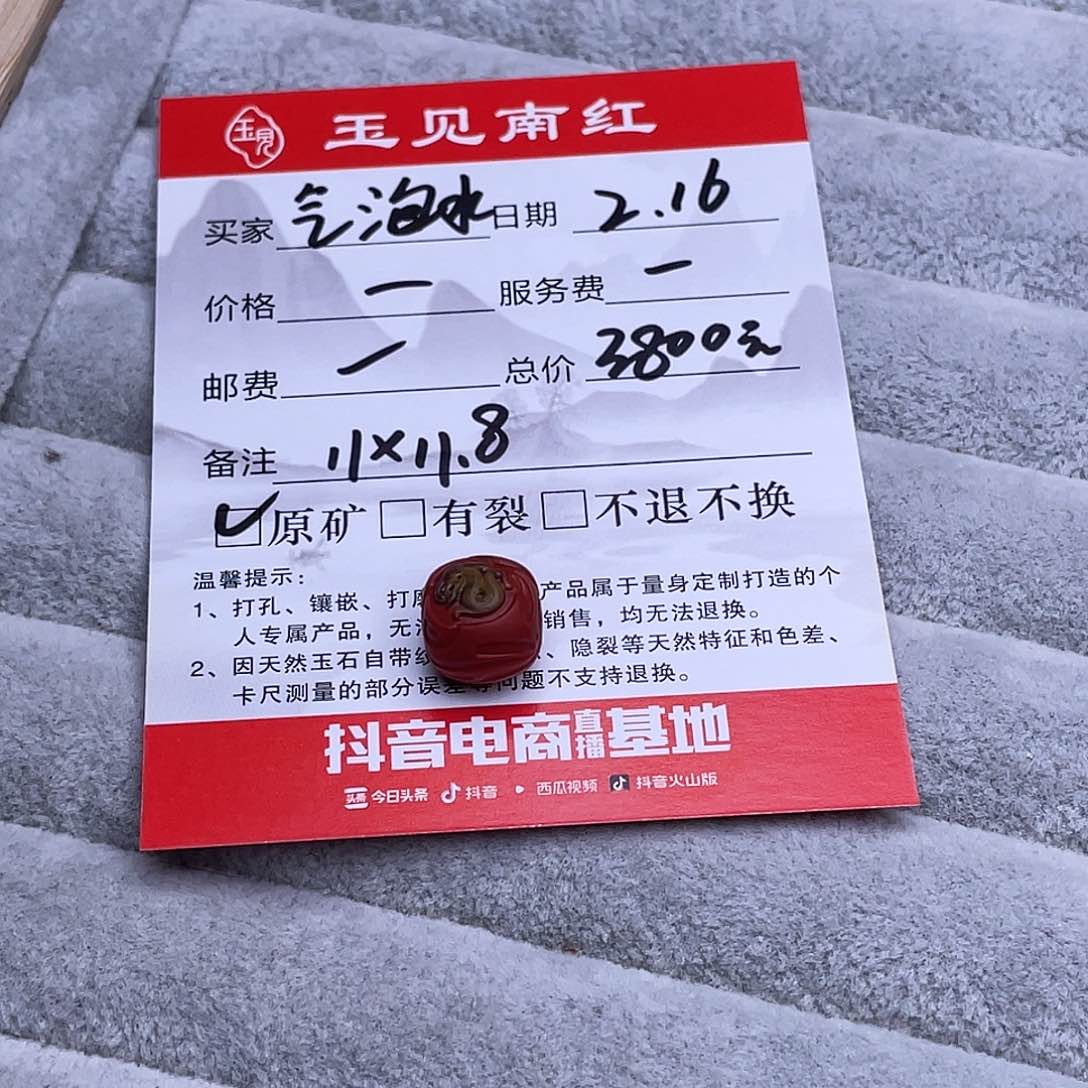 玉见 玉见南红
买家 气泡水 日期 2.16
价格 一 服务费 一
邮费 一 总价 3800元
备注 11×11.8
原矿 有裂 不退不换
温馨提示：
1、打孔、镶嵌、打 产品属于量身定制打造的个
人专属产品，无 销售，均无法退换。
2、因天然玉石自带 、隐裂等天然特征和色差、
卡尺测量的部分误 问题不支持退换。
抖音电商直播基地
头条 今日头条 抖音 西瓜视频 抖音火山版